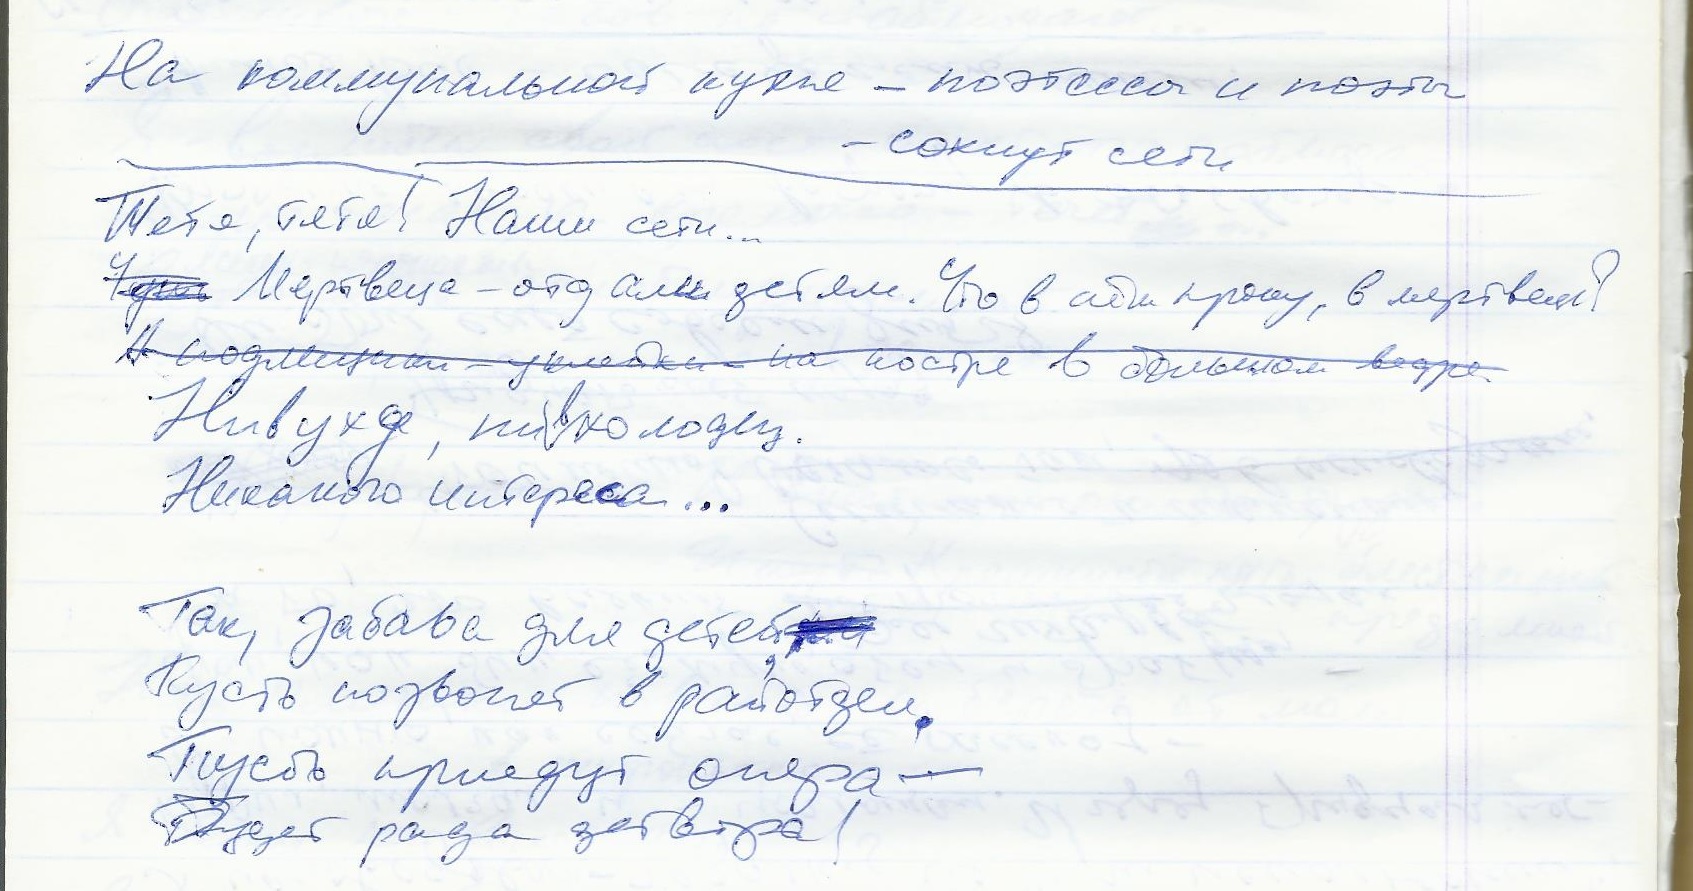 На коммунальной кухне – поэтессы и поэты
– сохнут сети
Тятя, тятя! Наши сети...
Мертвеца – отдали детям. Что в нём проку, в мертвеце?
А подлещики – уклейки – на костре в большом ведре
Никакого интереса...
Так, забава для детей
Пусть позвонят в райотдел.
Пусть приедут опера —
Будет рада детвора!